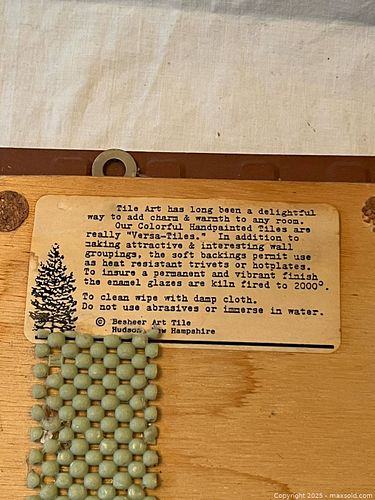 Tile Art has long been a delightful
way to add charm & warmth to any room.
Our Colorful Handpainted Tiles are
really "Versa-Tiles." In addition to
making attractive & interesting wall
groupings, the soft backings permit use
as heat resistant trivets or hotplates.
To insure a permanent and vibrant finish
the enamel glazes are kiln fired to 2000°.
To clean wipe with damp cloth.
Do not use abrasives or immerse in water.
© Besheer Art Tile
Hudson, New Hampshire
Copyright 2025 - maxsold.com